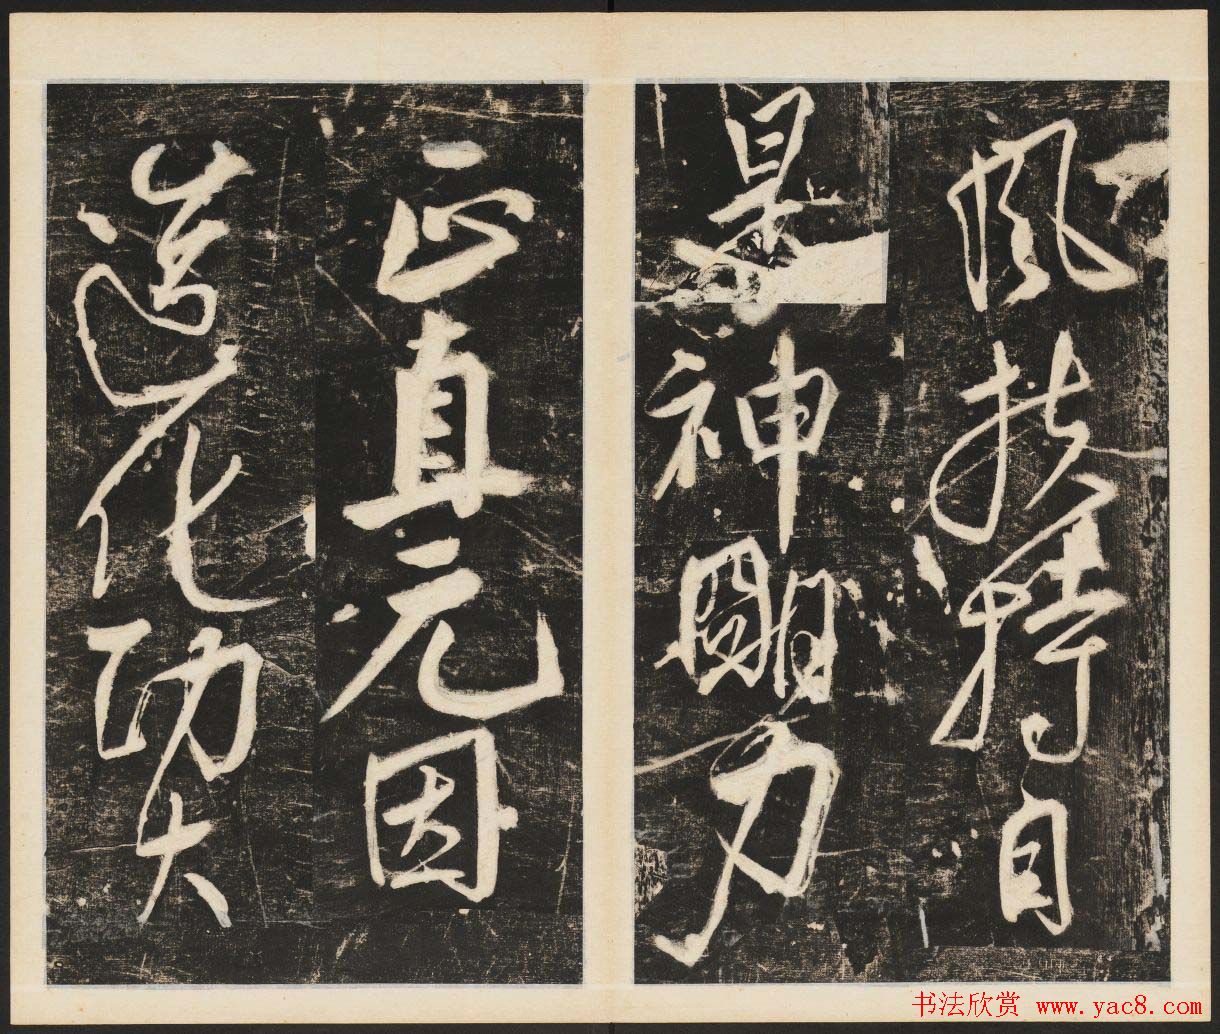 風扶持自
是神明力
正直元因
造化功大
书法欣赏 www.yac8.com